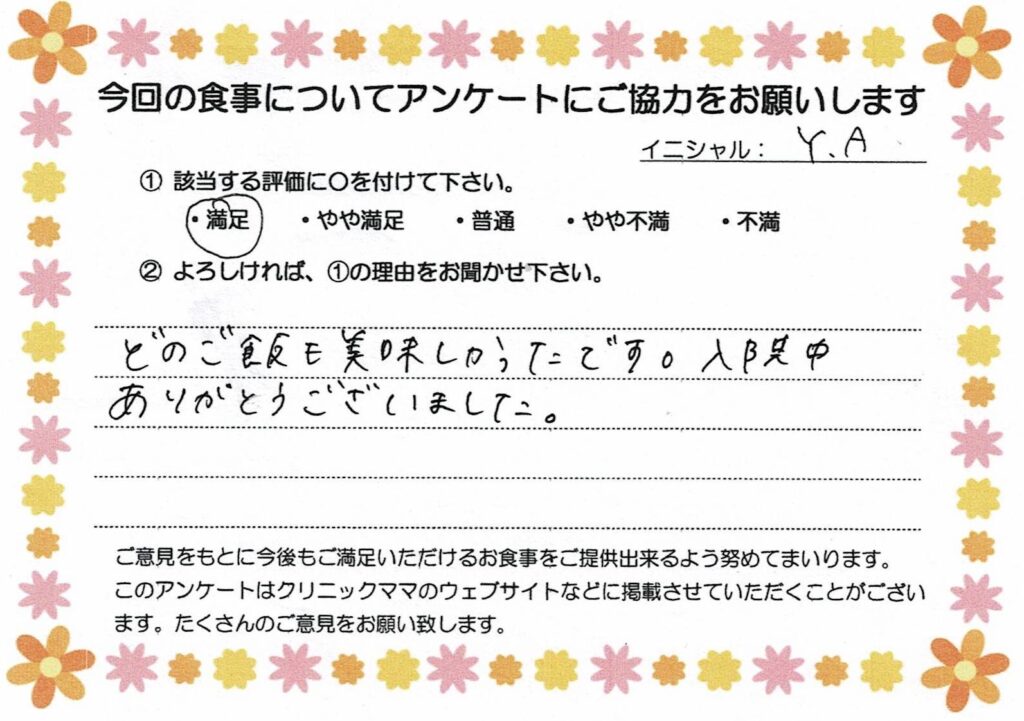 今回の食事についてアンケートにご協力をお願いします
イニシャル： Y.A
① 該当する評価に○を付けて下さい。
・満足 ・やや満足 ・普通 ・やや不満 ・不満
② よろしければ、①の理由をお聞かせ下さい。
どのご飯も美味しかったです。入院中
ありがとうございました。
ご意見をもとに今後もご満足いただけるお食事をご提供出来るよう努めてまいります。
このアンケートはクリニックママのウェブサイトなどに掲載させていただくことがござい
ます。たくさんのご意見をお願い致します。